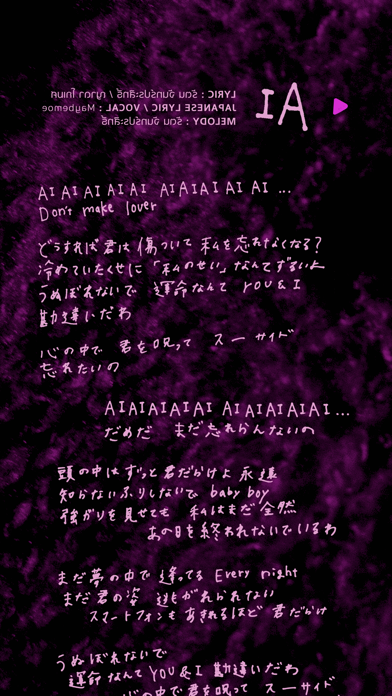 LYRIC :
JAPANESE LYRIC / VOCAL : Maybemoe
MELODY :
IA
AIAIAIAIAI AIAIAIAIAI ...
Don't make lover
どうすれば君は 傷ついて 私を忘れなくなる?
冷めていたくせに「私のせい」なんてずるいよ
うぬぼれないで 運命なんて YOU & I
勘違いだわ
心の中で 君を呪って スーサイド
忘れたいの
AIAIAIAIAI AIAIAIAIAI...
だめだ まだ忘れらんないの
頭の中はずっと君だらけよ 永遠
知らないふりしないで baby boy
強がりを見せても 私はまだ全然
あの日を終われないでいるわ
まだ夢の中で 逢ってる Every night
まだ君の姿 逃がれられない
スマートフォンもあきれるほど 君だらけ
うぬぼれないで
運命なんて YOU & I 勘違いだわ
心の中で君を呪って スーサイド